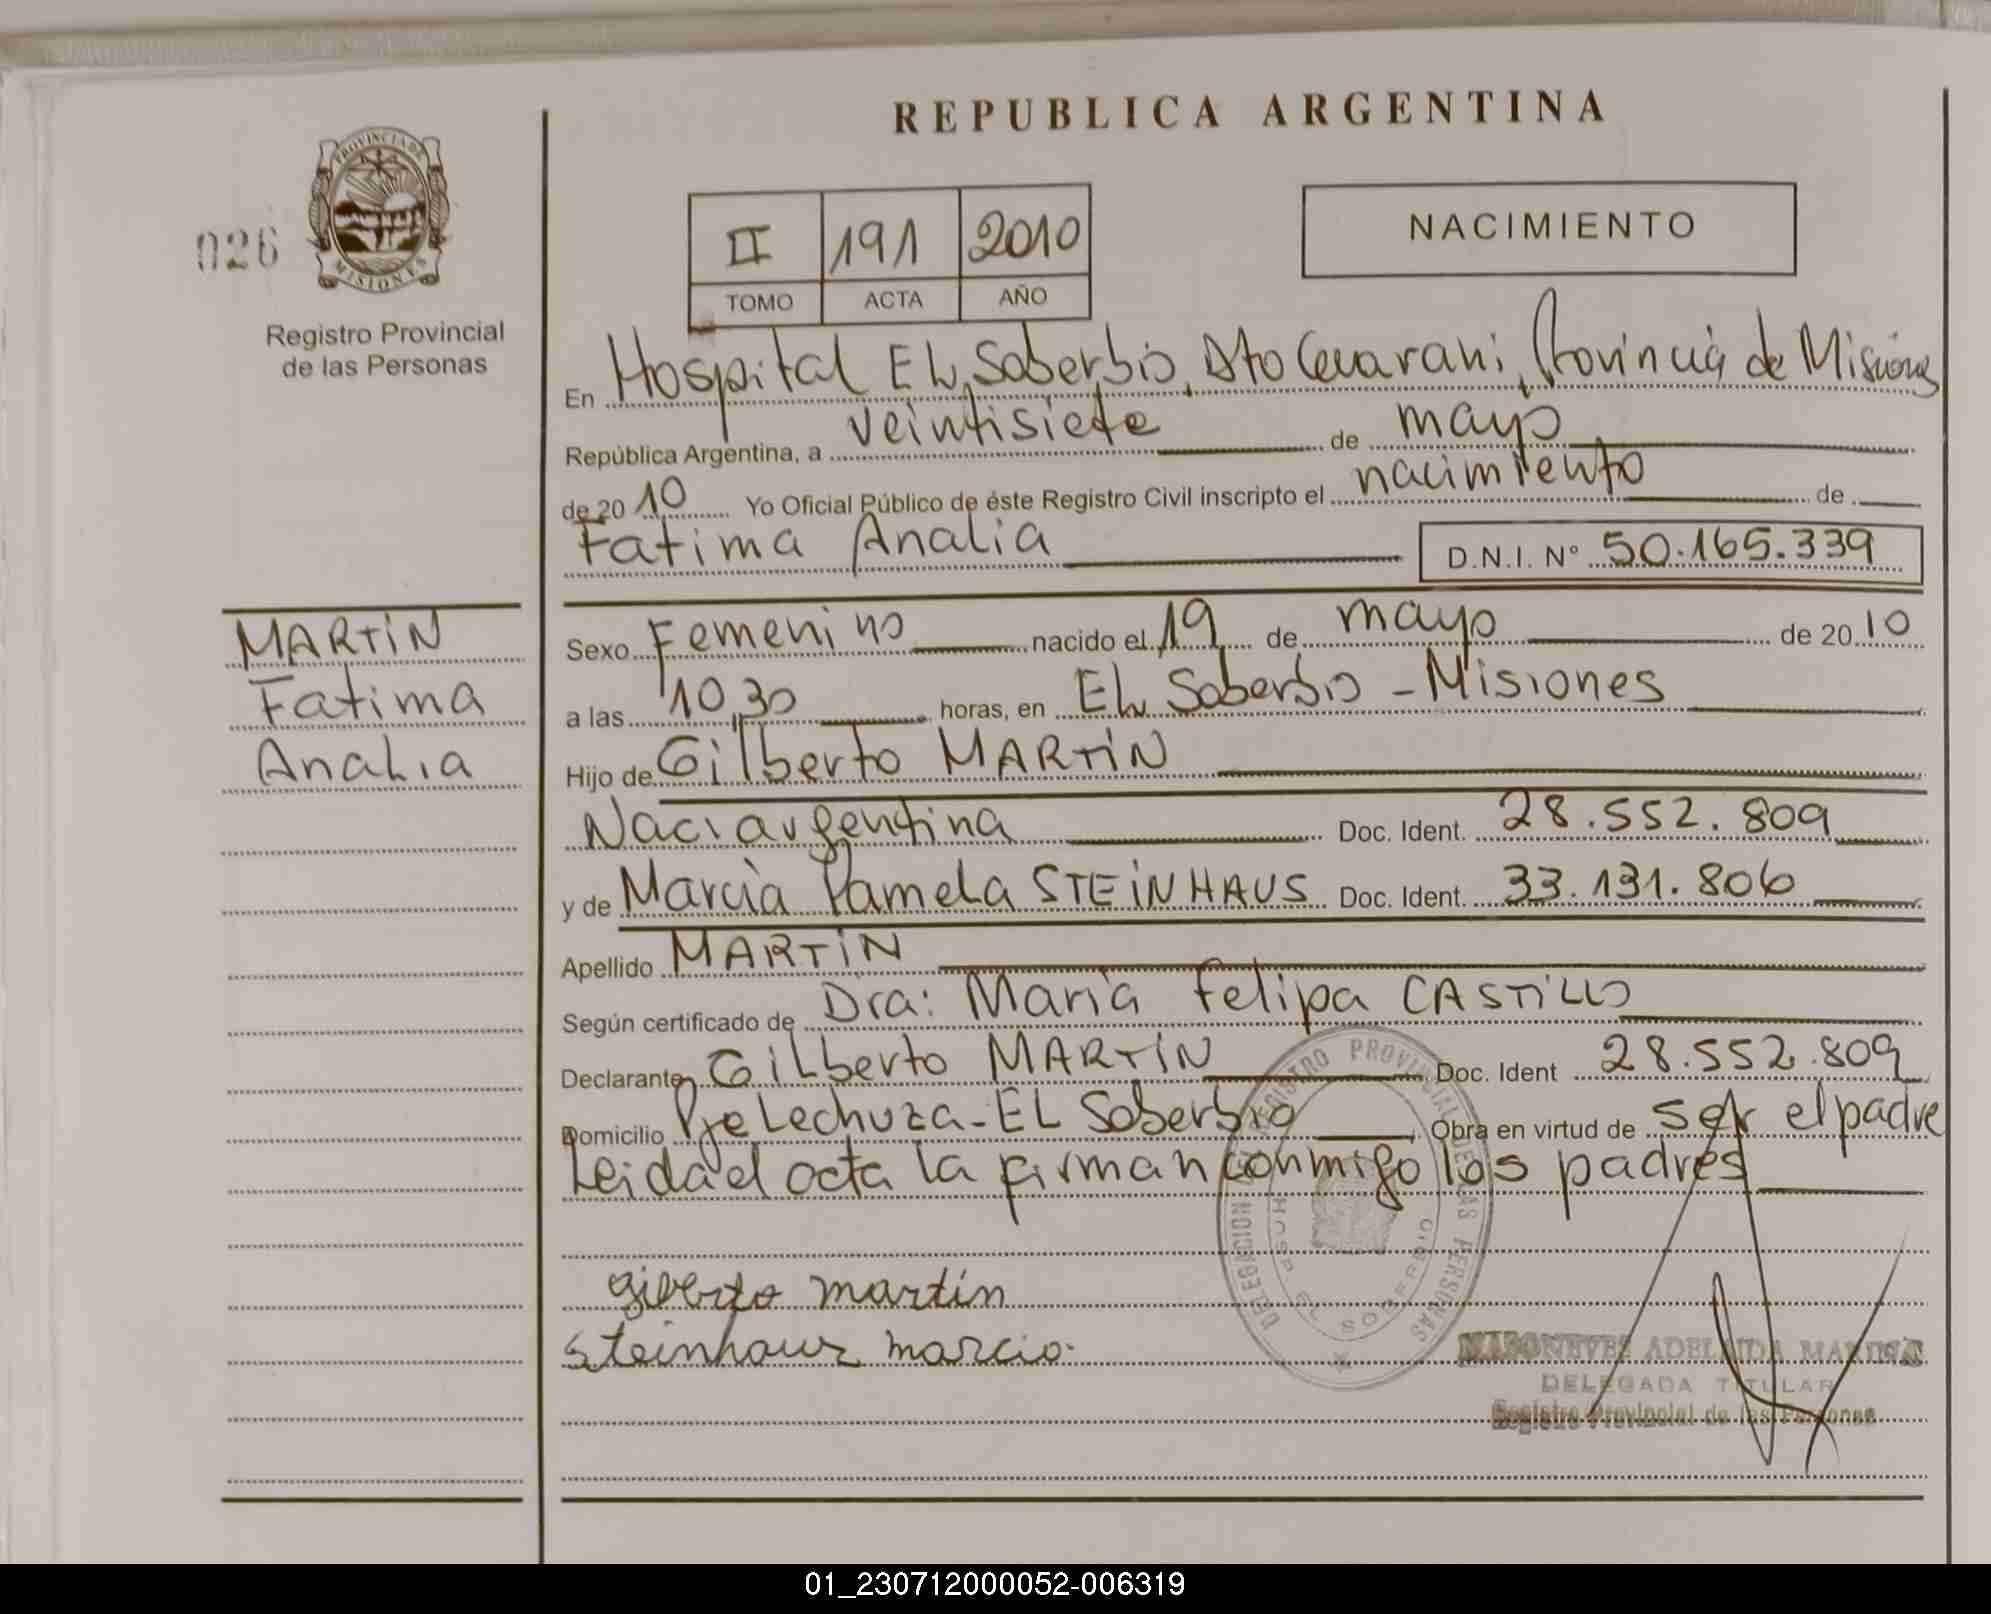 REPUBLICA ARGENTINA
PROVINCIA DE
MISIONES
026
Registro Provincial
de las Personas
II 191 2010
TOMO ACTA AÑO
NACIMIENTO
En Hospital EL Soberbio, Dto Guarani, Provincia de Misiones
República Argentina, a veintisiete de mayo
de 2010 Yo Oficial Público de éste Registro Civil inscripto el nacimiento de
Fatima Analia D.N.I. Nº 50.165.339
MARTIN
Fatima
Analia
Sexo Femenino nacido el 19 de mayo de 2010
a las 10,30 horas, en EL Soberbio - Misiones
Hijo de Gilberto MARTIN
Naci argentina Doc. Ident. 28.552.809
y de Marcia Pamela STEINHAUS Doc. Ident. 33.131.806
Apellido MARTIN
Según certificado de Dra: Maria Felipa CASTILLO
Declarante Gilberto MARTIN Doc. Ident 28.552.809
Domicilio Pje Lechuza - EL Soberbio Obra en virtud de ser el padre
Leida el acta la firman conmigo los padres
DELEGACION REGISTRO PROVINCIAL DE LAS PERSONAS
HOSP. EL SOBERBIO
gilberto martin
steinhaus marcia
ADELAIDA MARINA
DELEGADA TITULAR
Registro Provincial de las Personas
01_230712000052-006319